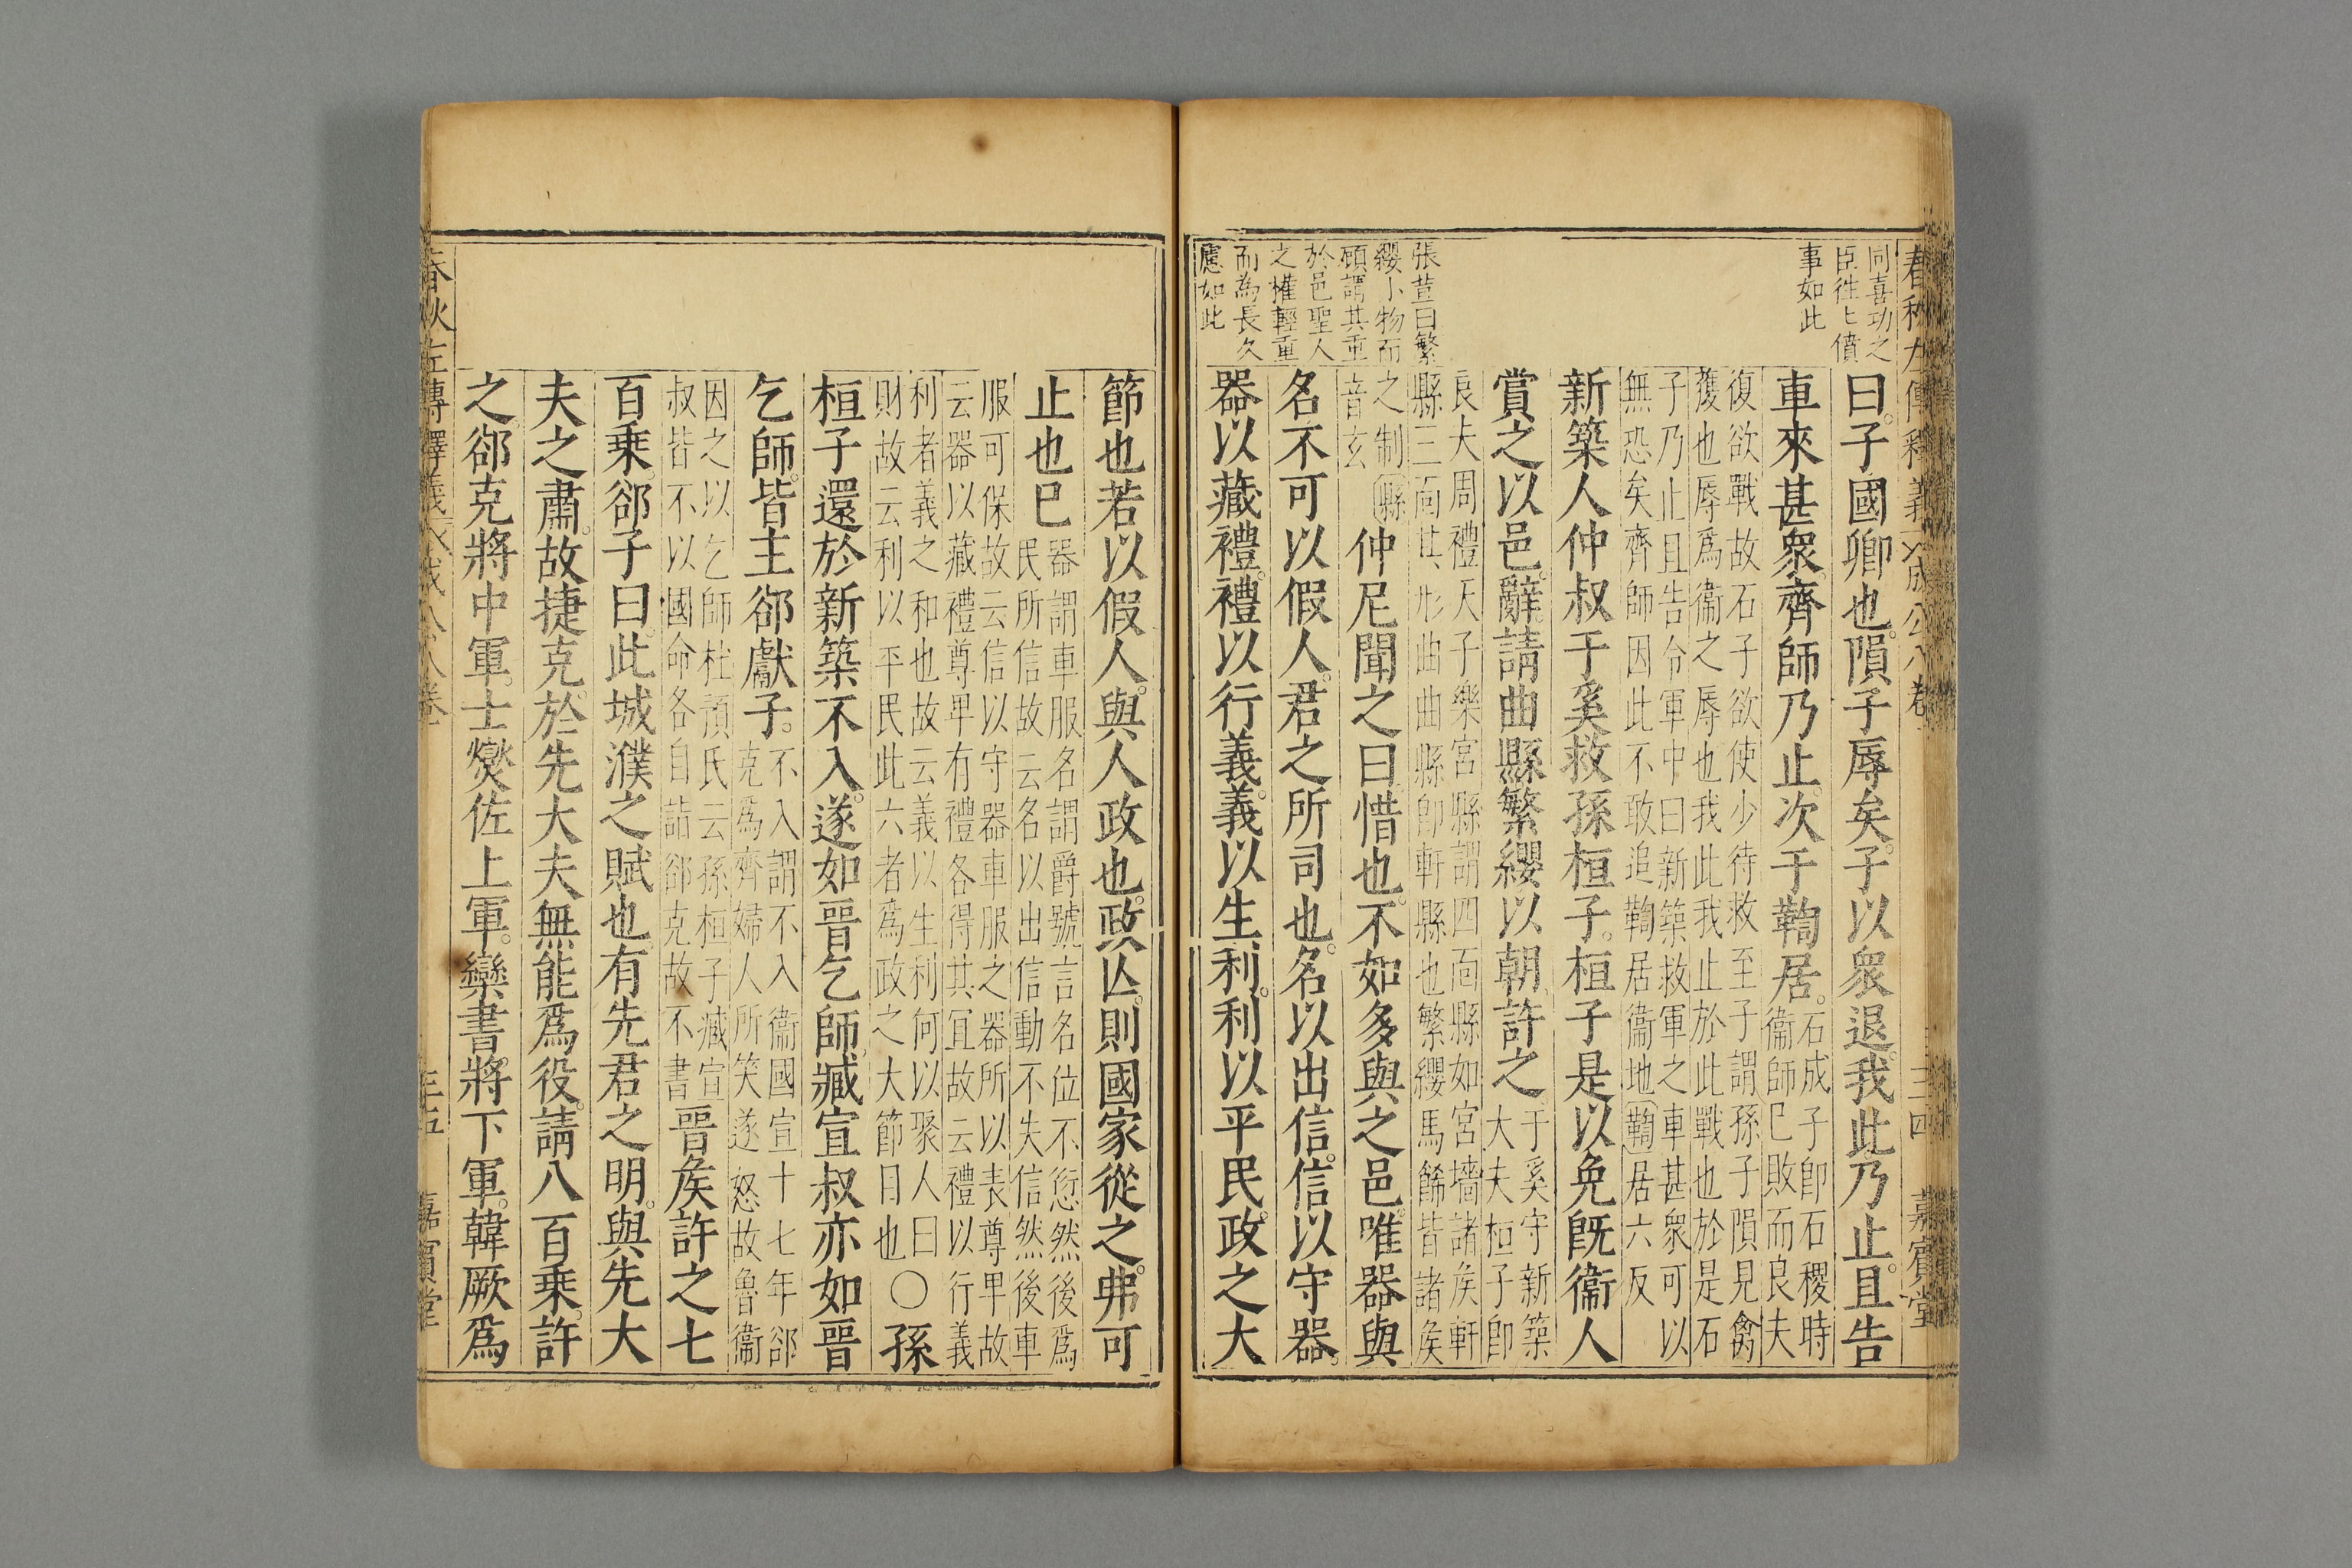 春秋左傳釋義 成公八卷 三四 嘉賓堂
同喜功之
臣徃𠤎債
事如此
張荁曰繁
纓小物而
顧謂其重
於邑聖人
之權輕重
而為長久
慮如此
曰子國卿也隕子辱矣子以衆退我此乃止且告
車來甚衆齊師乃止次于鞫居石成子即石稷時
衞師巳敗而良夫
復欲戰故石子欲使少待救至子謂孫子隕見禽
獲也辱爲衞之辱也我此我止於此戰也於是石
子乃止且告令軍中曰新築救軍之車甚衆可以
無恐矣齊師因此不敢追鞫居衞地鞫居六反
新築人仲叔于奚救孫桓子桓子是以免旣衞人
賞之以邑辭請曲縣繁纓以朝許之于奚守新築
大夫桓子卽
良夫周禮天子樂宮縣謂四靣縣如宮墻諸矦軒
縣三靣其形曲曲縣卽軒縣也繁纓馬餙皆諸矦
之制縣
音玄
仲尼聞之曰惜也不如多與之邑唯器與
名不可以假人君之所司也名以出信信以守器
器以藏禮禮以行義義以生利利以平民政之大
節也若以假人與人政也政亾則國家從之弗可
止也巳器謂車服名謂爵號言名位不愆然後爲
民所信故云名以出信動不失信然後車
服可保故云信以守器車服之器所以表尊卑故
云器以藏禮尊卑有禮各得其宜故云禮以行義
利者義之和也故云義以生利何以聚人曰
財故云利以平民此六者爲政之大節目也〇孫
桓子還於新築不入遂如晉乞師臧宣叔亦如晉
乞師皆主郤獻子不入謂不入衞國宣十七年郤
克爲齊婦人所笑遂怒故魯衞
因之以乞師杜預氏云孫桓子臧宣
叔皆不以國命各自詣郤克故不書
晉矦許之七
百乘郤子曰此城濮之賦也有先君之明與先大
夫之肅故捷克於先大夫無能爲役請八百乘許
之郤克將中軍士燮佐上軍欒書將下軍韓厥爲
春秋左傳釋義 成公八卷 三五 嘉賓堂